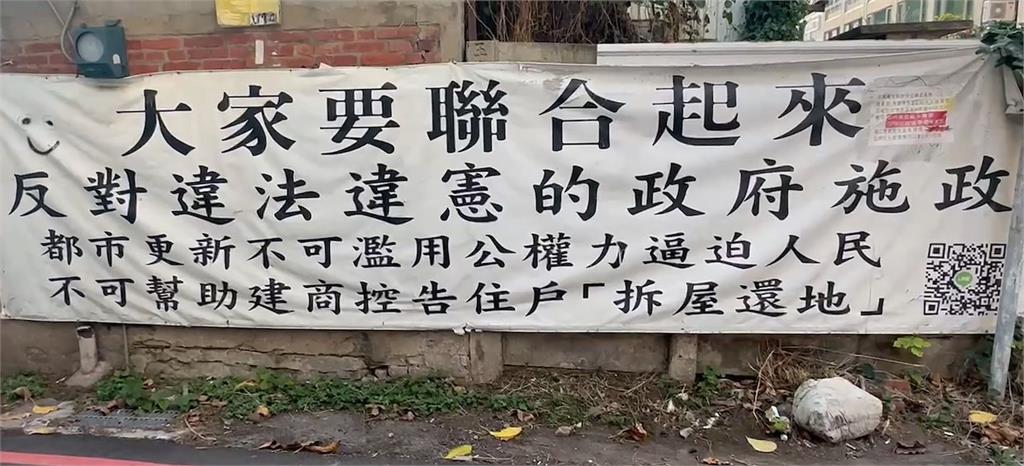 大家要聯合起來
反對違法違憲的政府施政
都市更新不可濫用公權力逼迫人民
不可幫助建商控告住戶「拆屋還地」